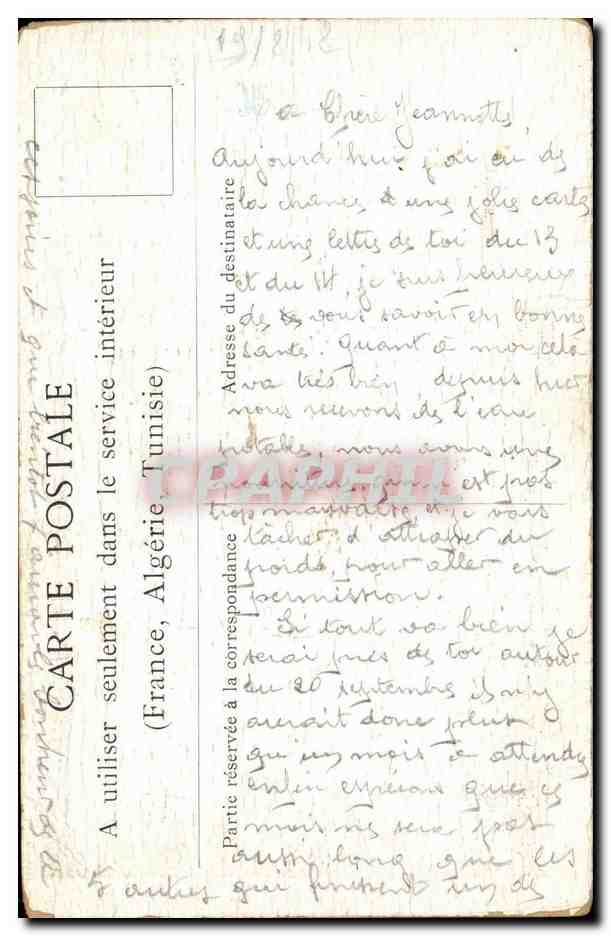 CARTE POSTALE
A utiliser seulement dans le service intérieur
(France, Algérie, Tunisie)
Adresse du destinataire
Partie réservée à la correspondance
CPAPHIL
19/8/
Chère Jeannette,
Aujourd'hui j'ai eu de
la chance une jolie carte
et une lettre de toi du 13
et du 14, je suis heureux
de vous savoir en bonne
santé. Quant à moi cela
va très bien, depuis hier
nous recevons de l'eau
potable, nous avons une
qui n'est pas
trop mauvaise et je vais
tâcher d'attraper du
poids, pour aller en
permission.
Si tout va bien je
serai près de toi autour
du 20 septembre il n'y
aurait donc plus
qu'un mois à attendre
enfin espérons que ce
mois ne sera pas
aussi long que les
5 autres qui finissent un de
ces jours et que bientôt